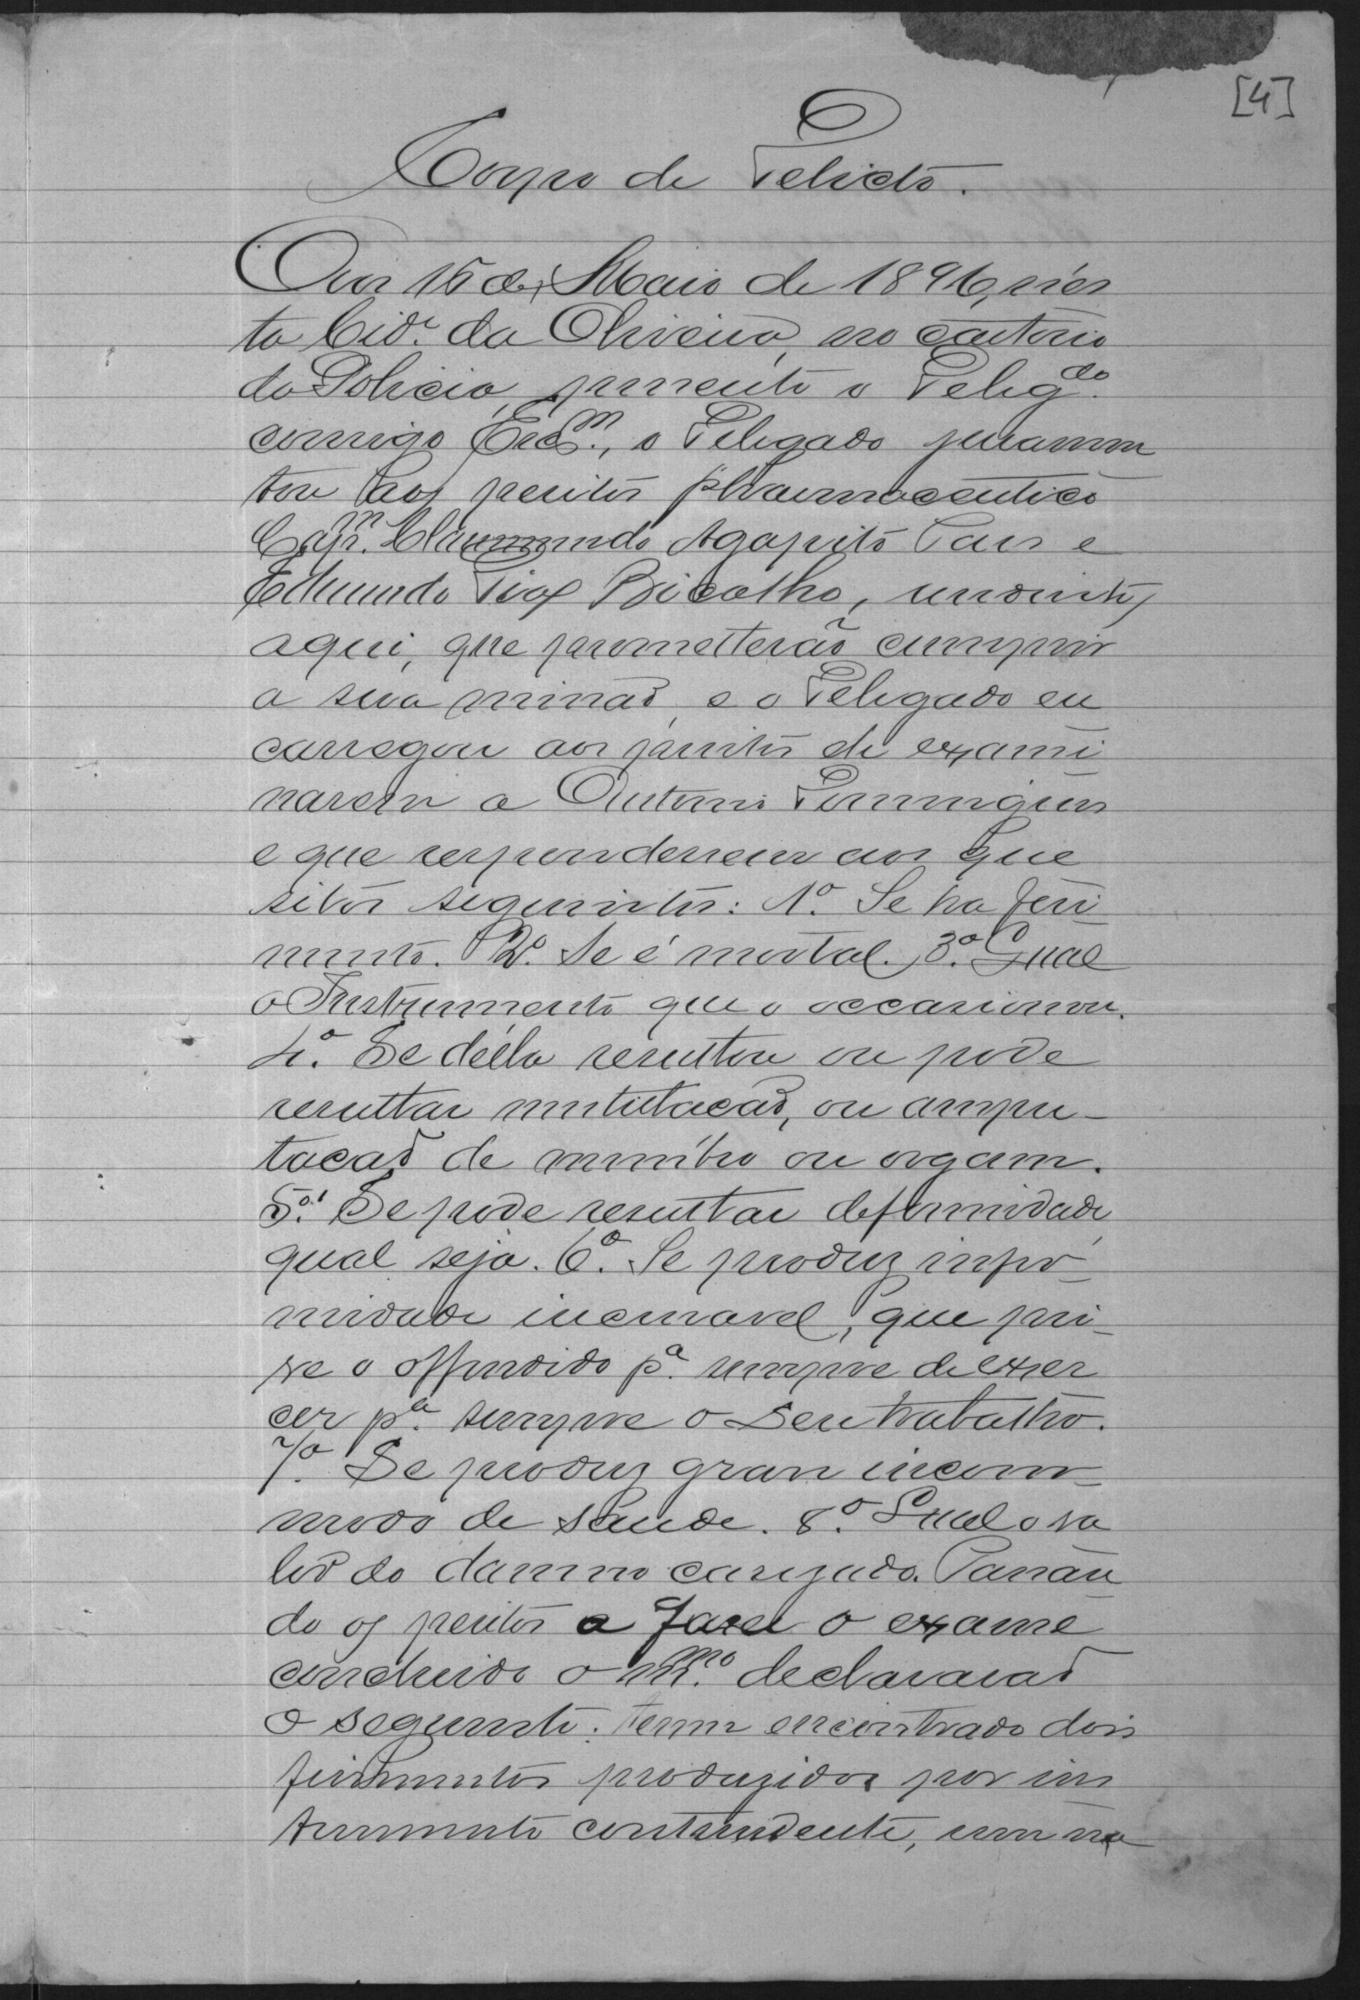 [4]
Corpo de Delicto.
Aos 15 de Maio de 1896, nes
ta Cid.e da Oliveira, no cartorio
da Policia, presente o Deleg.do
comigo Escr.m, o Delegado juramen
tou aos peritos pharmaceutico
Cap.m Agapito Paes e
Edmundo Dias Bicalho, residentes
aqui, que prometterão cumprir
a sua missaõ, e o Delegado en
carregou aos peritos de exami
narem a Antonio Domingues
e que respondessem aos que
sitos seguintes: 1º. Se ha feri-
mento. 2º. Se é mortal. 3º. Qual
o Instrumento que o occasionou.
4º. Se délla resultou ou pode
resultar mutilacaõ, ou ampu-
tacaõ de membro ou orgam.
5º. Se pode resultar deformidade,
qual seja. 6º. Se produz infer-
midade incuravel, que pri-
ve o offendido pª. sempre de exer
cer pª. sempre o seu trabalho.
7º. Se produz grave incom-
modo de saude. 8º. Qual o va
lor do damno causado. Passan
do os peritos a fazer o exame
concluido o m.mo declararaõ
o seguinte: terem encontrado dois
ferimentos produzidos por ins
trumento contundente, um na